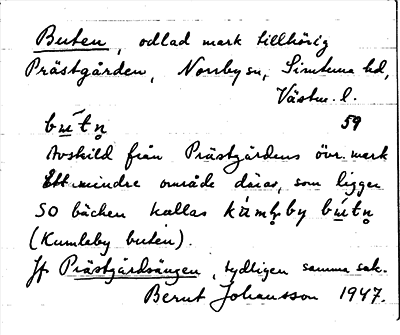 Buten, odlad mark tillhörig
Prästgården, Norrby sn, Simtuna hd,
Västm. l.
bú̱tn̥ 59
Avskild från Prästgårdens övr. mark
Ett mindre område därav, som ligger
SO bäcken kallas by bú̱tn̥
(Kumlaby buten).
Jf Prästgårdsängen, tydligen samma sak.
Bernt Johansson 1947.